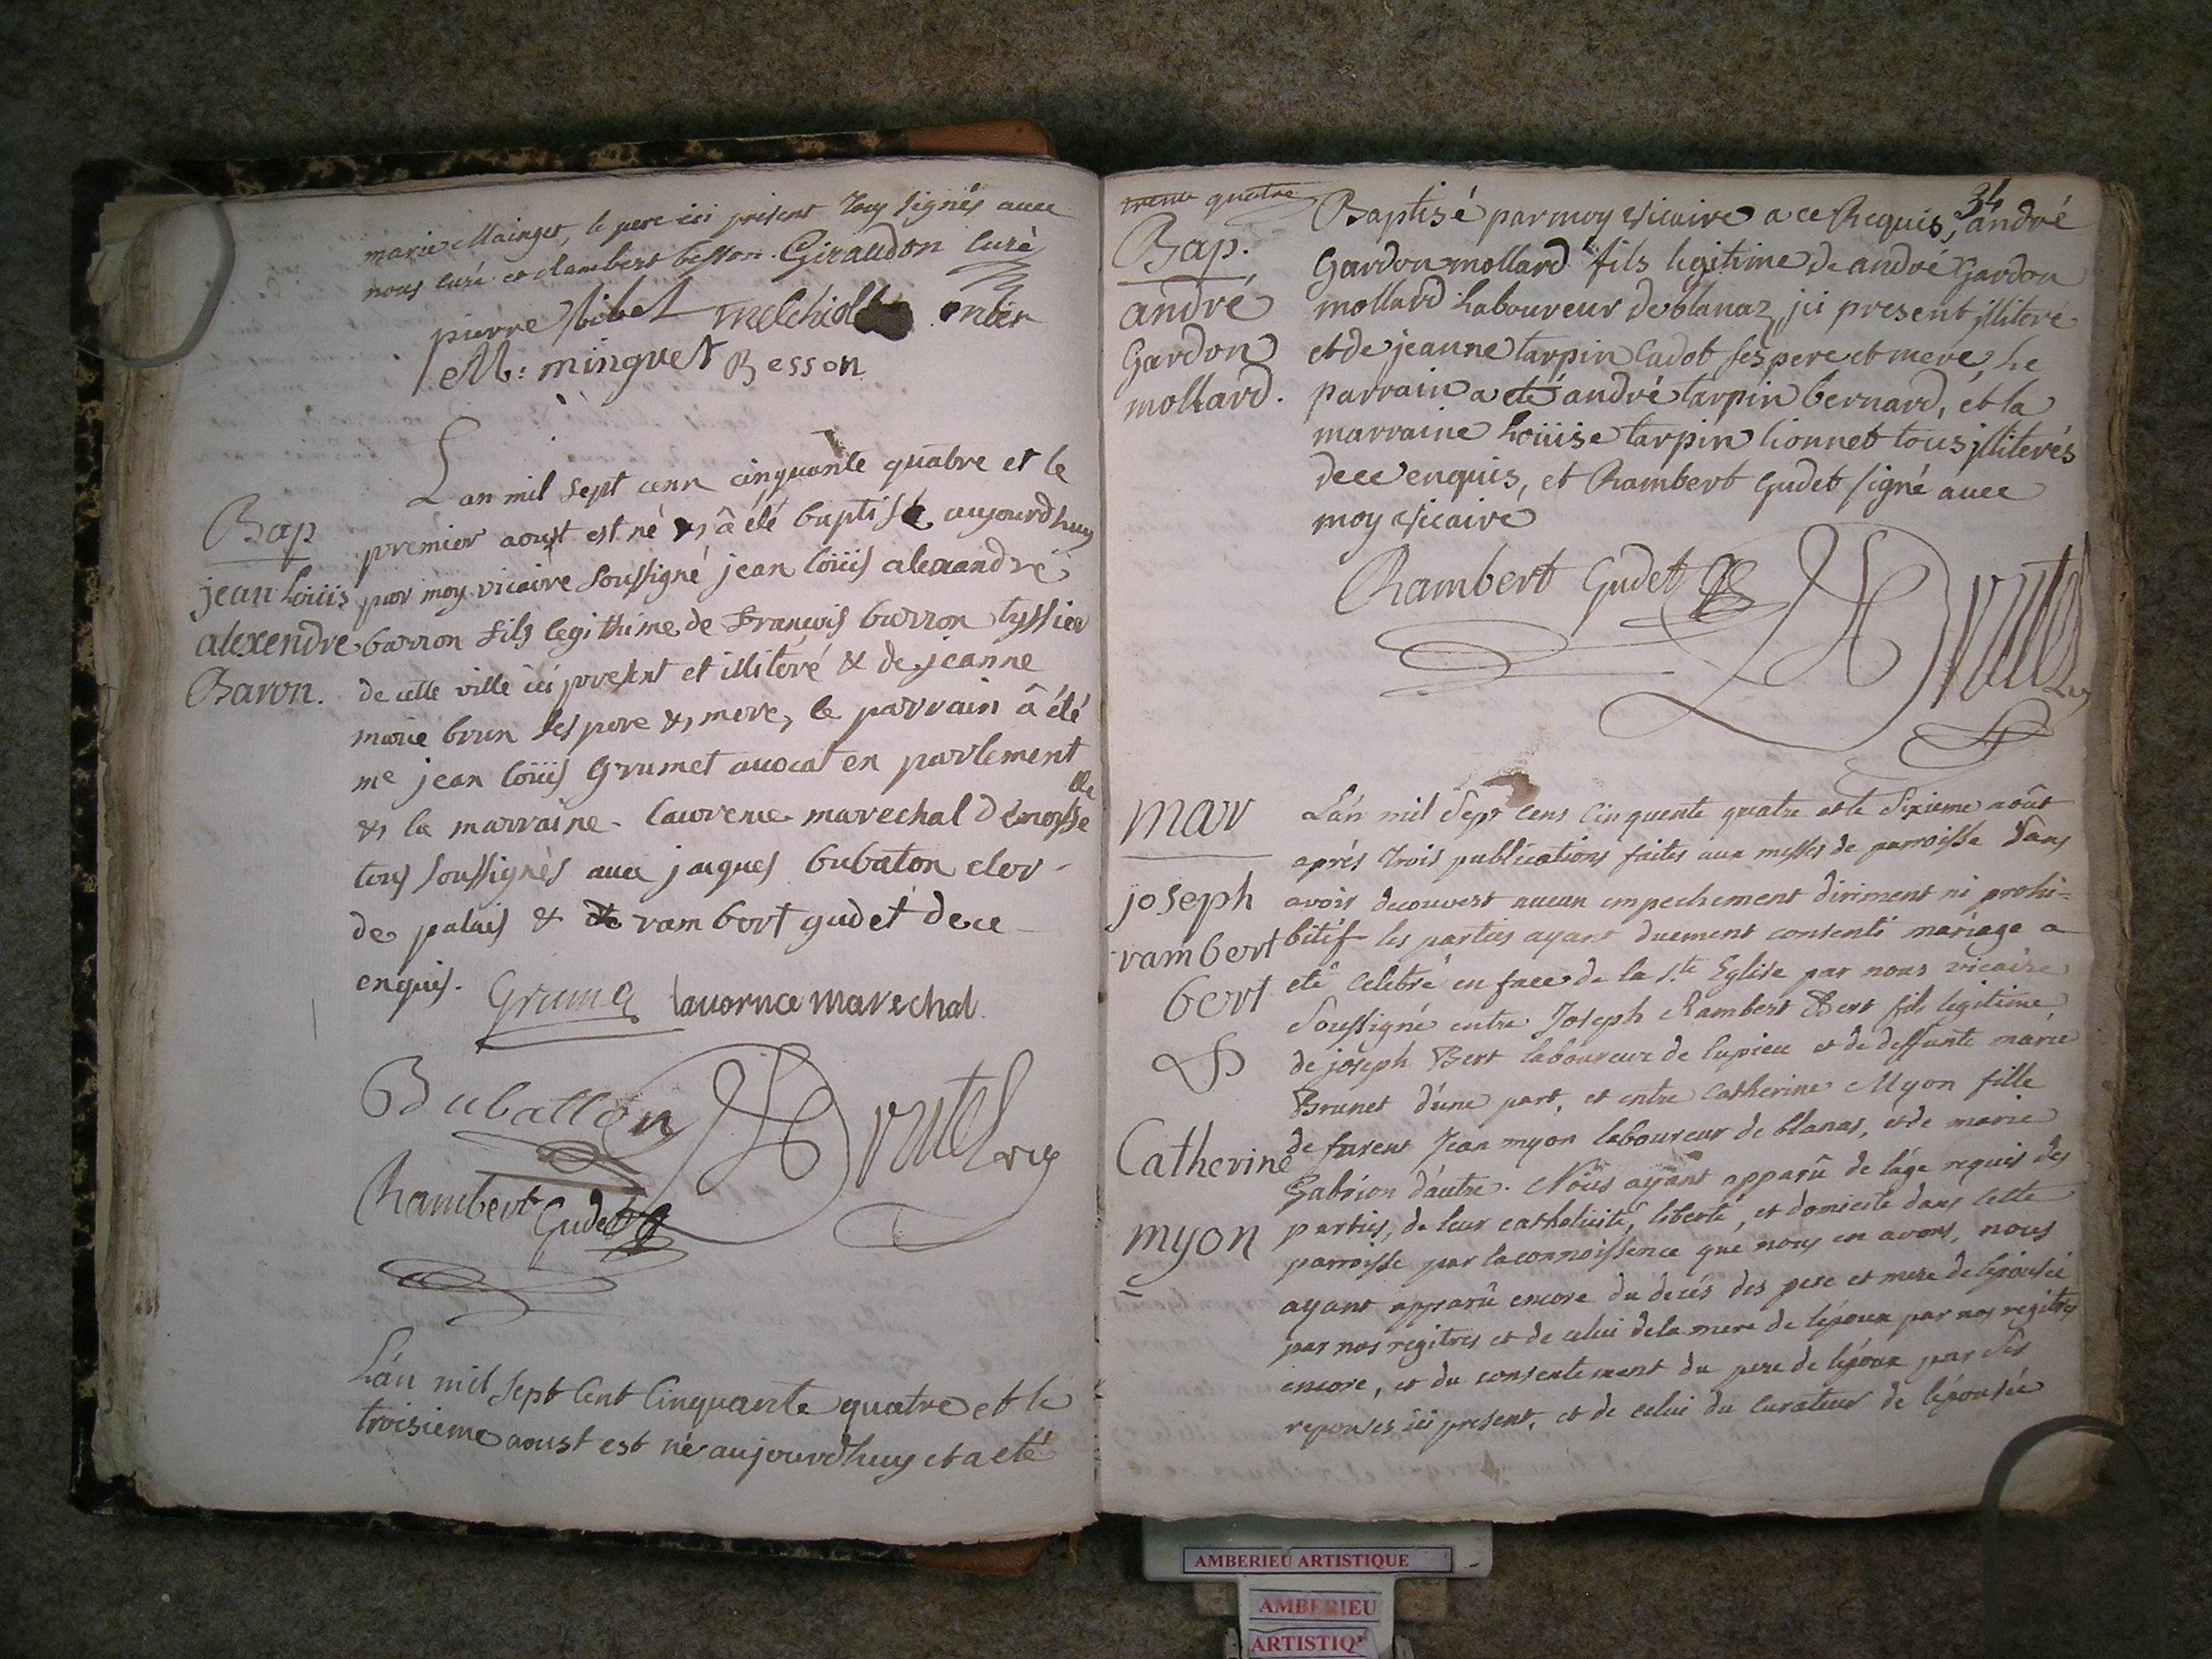 marie Mainget, le pere ici présent tous signés avec
nous curé et Rambert besson. Giraudon curé
pierre sibet melchiol
M: minguet Besson
L'an mil sept cenn cinquante quatre et le
Bap
premier aoust est né & â été baptisé aujourdhuy
jean Loüis
par moy vicaire soussigné jean loüis alexandre
alexendre
barron fils legithime de françois barron tyssier
Baron.
de cette ville ici present et illiteré & de jeanne
marie brun ses pere & mere, le parrain â été
me jean loüis Grumet avocat en parlement
& la marraine laurence marechal demoiselle
tous soussignés avec jacques bubaton cler
de palais & rambert gudet de ce
enquis. Grumet lauornce marechal.
Buballon
Rambert Gudet
L'an mil sept Cent Cinquante quatre et le
troisieme aoust est né aujourdhuy et a eté
trente quatre
34
Bap.
andré
Gardon
mollard.
Baptisé par moy vicaire a ce Requis, andré
Gardon mollard fils legitime de andré Gardon
mollard Laboureur de blanaz, ici present jlliteré
et de jeanne tarpin Cadot ses pere et mere, Le
parrain a eté andré tarpin bernard, et la
marraine Loüise tarpin lionnet tous jlliterés
de ce enquis, et Rambert Gudet signé avec
moy vicaire
Rambert Gudet
mar
joseph
rambert
bert
&
Catherine
myon
L'an mil Sept Cens Cinquente quatre et le Sixieme aoôut
aprés trois publications faites aux messes de parroisse Sans
avoir decouvert aucun empechement diriment ni prohi=
bitif les parties ayant duement consenti mariage a
eté Celebré en face de la ste Eglise par nous vicaire
Soussigné entre Joseph Rambert Bert fils legitime
de joseph Bert laboureur de lupieu et de deffunte marie
Brunet d'une part, et entre Catherine Myon fille
de furent Jean myon laboureur de blanas, et de marie
Gabrion d'autre. Nous ayant apparû de lâge requis des
parties, de leur catholicité, liberté, et domicile dans cette
parroisse par la connoissence que nous en avons, nous
ayant apparû encore du decés des pere et mere de lépousée
par nos regitres et de celui de la mere de lépoux par nos regitres
encore, et du consentement du pere de lépoux par Ses
reponses ici present, et de celui du Curateur de lépousée
AMBERIEU ARTISTIQUE
AMBERIEU
ARTISTIQ